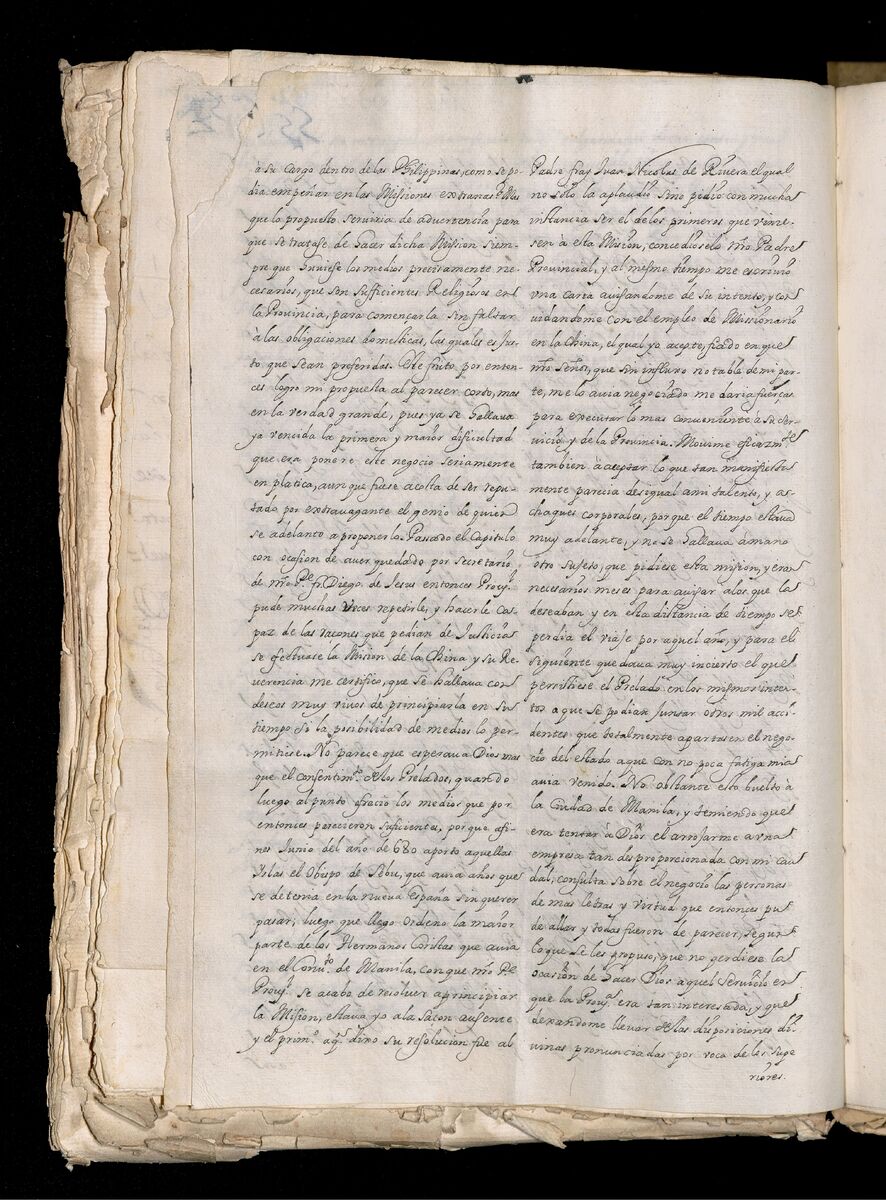 à su cargo dentro de las Philippinas, como se po-
dia empeñar en las Missiones extranas. Mas
que lo propuesto serviria de advertencia para
que se tratase de hacer dicha Mission siem-
pre que huviese los medios precisamente ne-
cesarios, que son sufficientes Religiosos en
la Provincia, para començarla sin faltar
à las obligaciones domesticas, las quales es jus-
to que sean preferidas. Este fruto por enton-
ces logro mi propuesta al parecer corto, mas
en la verdad grande, pues ya se hallava
ya vencida la primera y maior dificultad
que era ponere este negocio seriamente
en platica, aunque fuese acosta de ser repu-
tado por extravagante el genio de quien
se adelanto a proponerlo. Passado el Capitulo
con ocasion de aver quedado por secretario
de nro Pe fr. Diego de Jesus entonces Provl.
pude muchas veces repetirle, y hacerle ca-
paz de las raçones que pedian de Justicia
se efectuase la Mision de la China y su Re-
verencia me certifico, que se hallava con
deseos muy vivos de principiarla en su
tiempo si la posibilidad de medios lo per-
mitiese. No parece que esperava Dios mas
que el consentimo. de los Prelados, quando
luego al punto ofrecio los medios que por
entonces parecieron suficientes, porque afi-
nes Junio del año de 680 aporto aquellas
Yslas el Obispo de Sebu, que avia años que
se detenia en la nueva España sin querer
pasar; luego que llego Ordeno la maior
parte de los Hermanos Coristas que avia
en el Convto. de Manila, con que nro Pe.
Provl. se acabo de resolver aprincipiar
la Mision, estava yo ala saçon ausente
y el primo. aqn. dixo su resolucion fue al
Padre fray Juan Nicolas de Rivera el qual
no solo la aplaudio sino pidio con mucha
instancia ser el de los primeros que vinie-
sen à esta Mision, concedioselo nro Padre
Provincial, y al mesmo tiempo me escrivio
una carta avisandome de su intento, y con-
vidandome con el empleo de Missionario
en la China, el qual yo acepte, fiado en que
nro Señor, que sin influxo notable de mi par-
te, me lo avia negociado me daria fuerças
para executar lo mas conveniente à su ser-
vicio y de la Provincia. Movime eficazmte
tambien à aceptar lo que tan manifiesta
mente parecia desigual ami talento, y a-
chaques corporales, porque el tiempo estava
muy adelante, y no se hallava à mano
otro sujeto, que pidiese esta mision, y eran
necesarios meses para avisar alos que la
deseaban y en esta distancia de tiempo se
perdia el viaje por aquel año, y para el
siguiente quedava muy incierto el que
persistiese el Prelado en los mismos inten-
tos a que se podian juntar otros mil acci-
dentes que totalmente apartasen el nego-
cio del estado aque con no poca fatiga mia
avia venido. No obstante esto buelto à
la Ciudad de Manila, y temiendo que
era tentar à Dios el arrojarme a una
empresa tan desproporcionada con mi cau-
dal, consulta sobre el negocio las personas
de mas letras y virtud que entonces pu-
de allar y todas fueron de parecer, segun
lo que se les propuso, que no perdiese la
ocasion de hacer Dios aquel servicio en
que la Provl. era tan interesada, y que
dexandome llevar de las disposiciones di-
vinas pronunciadas por voca de les supe
riores.